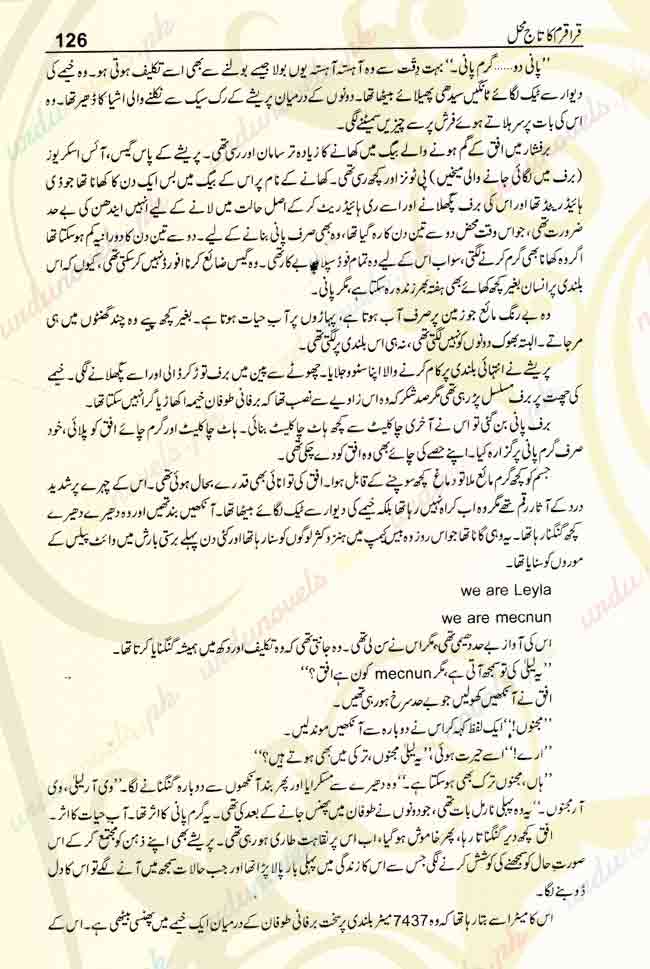 قراقرم کا تاج محل 126
’’پانی دو......گرم پانی۔‘‘ بہت دِقّت سے وہ آہستہ آہستہ یوں بولا جیسے بولنے سے بھی اسے تکلیف ہوتی ہو۔ وہ خیمے کی
دیوار سے ٹیک لگائے ٹانگیں سیدھی پھیلائے بیٹھا تھا۔ دونوں کے درمیان پریشے کے رک سیک سے نکلنے والی اشیا کا ڈھیر تھا۔ وہ
اس کی بات پر سر ہلاتے ہوئے فرش پر سے چیزیں سمیٹنے لگی۔
برفشار میں افق کے گم ہونے والے بیگ میں کھانے کا زیادہ تر سامان اور رسی تھی۔ پریشے کے پاس گیس، آئس اسکریوز
(برف میں لگائی جانے والی میخیں) پی ٹونز اور کچھ رسی تھی۔ کھانے کے نام پر اس کے بیگ میں بس ایک دن کا کھانا تھا جو ڈی
ہائیڈریٹڈ تھا اور اس کی برف پگھلانے اور اسے ری ہائیڈریٹ کر کے اصل حالت میں لانے کے لیے انہیں ایندھن کی بے حد
ضرورت تھی، جو اس وقت محض دو سے تین دن کا رہ گیا تھا، وہ بھی صرف پانی بنانے کے لیے۔ دو سے تین دن کا دورانیہ کم ہو سکتا تھا
اگر وہ کھانا بھی گرم کرنے لگتی، سو اب اس کے لیے وہ تمام فوڈ سپلائی بے کار تھی۔ وہ گیس ضائع کرنا افورڈ نہیں کر سکتی تھی، کیوں کہ اس
بلندی پر انسان بغیر کچھ کھائے بھی ہفتہ بھر زندہ رہ سکتا ہے، مگر پانی۔
وہ بے رنگ مائع جو زمین پر صرف آب ہوتا ہے، پہاڑوں پر آبِ حیات ہوتا ہے۔ بغیر کچھ پیے وہ چند گھنٹوں میں ہی
مر جاتے۔ البتہ بھوک دونوں کو نہیں لگتی تھی، نہ ہی اس بلندی پر لگتی تھی۔
پریشے نے انتہائی بلندی پر کام کرنے والا اپنا سٹوو جلایا۔ چھوٹے سے پین میں برف توڑ کر ڈالی اور اسے پگھلانے لگی۔ خیمے
کی چھت پر برف مسلسل پڑ رہی تھی مگر صد شکر کہ وہ اس زاویے سے نصب تھا کہ برفانی طوفان خیمہ اکھاڑ یا گرا نہیں سکتا تھا۔
برف پانی بن گئی تو اس نے آخری چاکلیٹ سے کچھ ہاٹ چاکلیٹ بنائی۔ ہاٹ چاکلیٹ اور گرم چائے افق کو پلائی، خود
صرف گرم پانی پر گزارہ کیا۔ اپنے حصے کی چائے بھی وہ افق کو دے چکی تھی۔
جسم کو کچھ گرم مائع ملا تو دماغ کچھ سوچنے کے قابل ہوا۔ افق کی توانائی بھی قدرے بحال ہوئی تھی۔ اس کے چہرے پر شدید
درد کے آثار رقم تھے مگر وہ اب کراہ نہیں رہا تھا بلکہ خیمے کی دیوار سے ٹیک لگائے بیٹھا تھا۔ آنکھیں بند تھیں اور وہ دھیرے دھیرے
کچھ گنگنا رہا تھا۔ یہ وہی گانا تھا جو اس روز وہ بیس کیمپ میں ہنزو کٹز لوگوں کو سنا رہا تھا اور کئی دن پہلے برستی بارش میں وائٹ پیلس کے
موروں کو سنایا تھا۔
we are Leyla
we are mecnun
اس کی آواز بے حد دھیمی تھی، مگر اس نے سن لی تھی۔ وہ جانتی تھی کہ وہ تکلیف اور دکھ میں ہمیشہ گنگنایا کرتا تھا۔
’’یہ لیلیٰ کی تو سمجھ آتی ہے، مگر mecnun کون ہے افق؟‘‘
افق نے آنکھیں کھولیں جو بے حد سرخ ہو رہی تھیں۔
’’مجنوں!‘‘ ایک لفظ کہہ کر اس نے دوبارہ سے آنکھیں موند لیں۔
’’ارے!‘‘ اسے حیرت ہوئی، ’’یہ لیلیٰ مجنوں، ترکی میں بھی ہوتے ہیں؟‘‘
’’ہاں، مجنوں ترک بھی ہو سکتا ہے۔‘‘ وہ دھیرے سے مسکرایا اور پھر بند آنکھوں سے دوبارہ گنگنانے لگا۔ ’’وی آر لیلیٰ، وی
آر مجنوں۔‘‘ یہ وہ پہلی نارمل بات تھی، جو دونوں نے طوفان میں پھنس جانے کے بعد کی تھی۔ یہ گرم پانی کا اثر تھا۔ آب حیات کا اثر۔
افق کچھ دیر گنگناتا رہا، پھر خاموش ہو گیا، اب اس پر نقاہت طاری ہو رہی تھی۔ پریشے بھی اپنے ذہن کو مجتمع کر کے اس
صورت حال کو سمجھنے کی کوشش کرنے لگی جس سے اس کا زندگی میں پہلی بار پالا پڑا تھا اور جب حالات سمجھ میں آنے لگے تو اس کا دل
ڈوبنے لگا۔
اس کا میٹر اسے بتا رہا تھا کہ وہ 7437 میٹر بلندی پر سخت برفانی طوفان کے درمیان ایک خیمے میں پھنسی بیٹھی ہے۔ اس کے